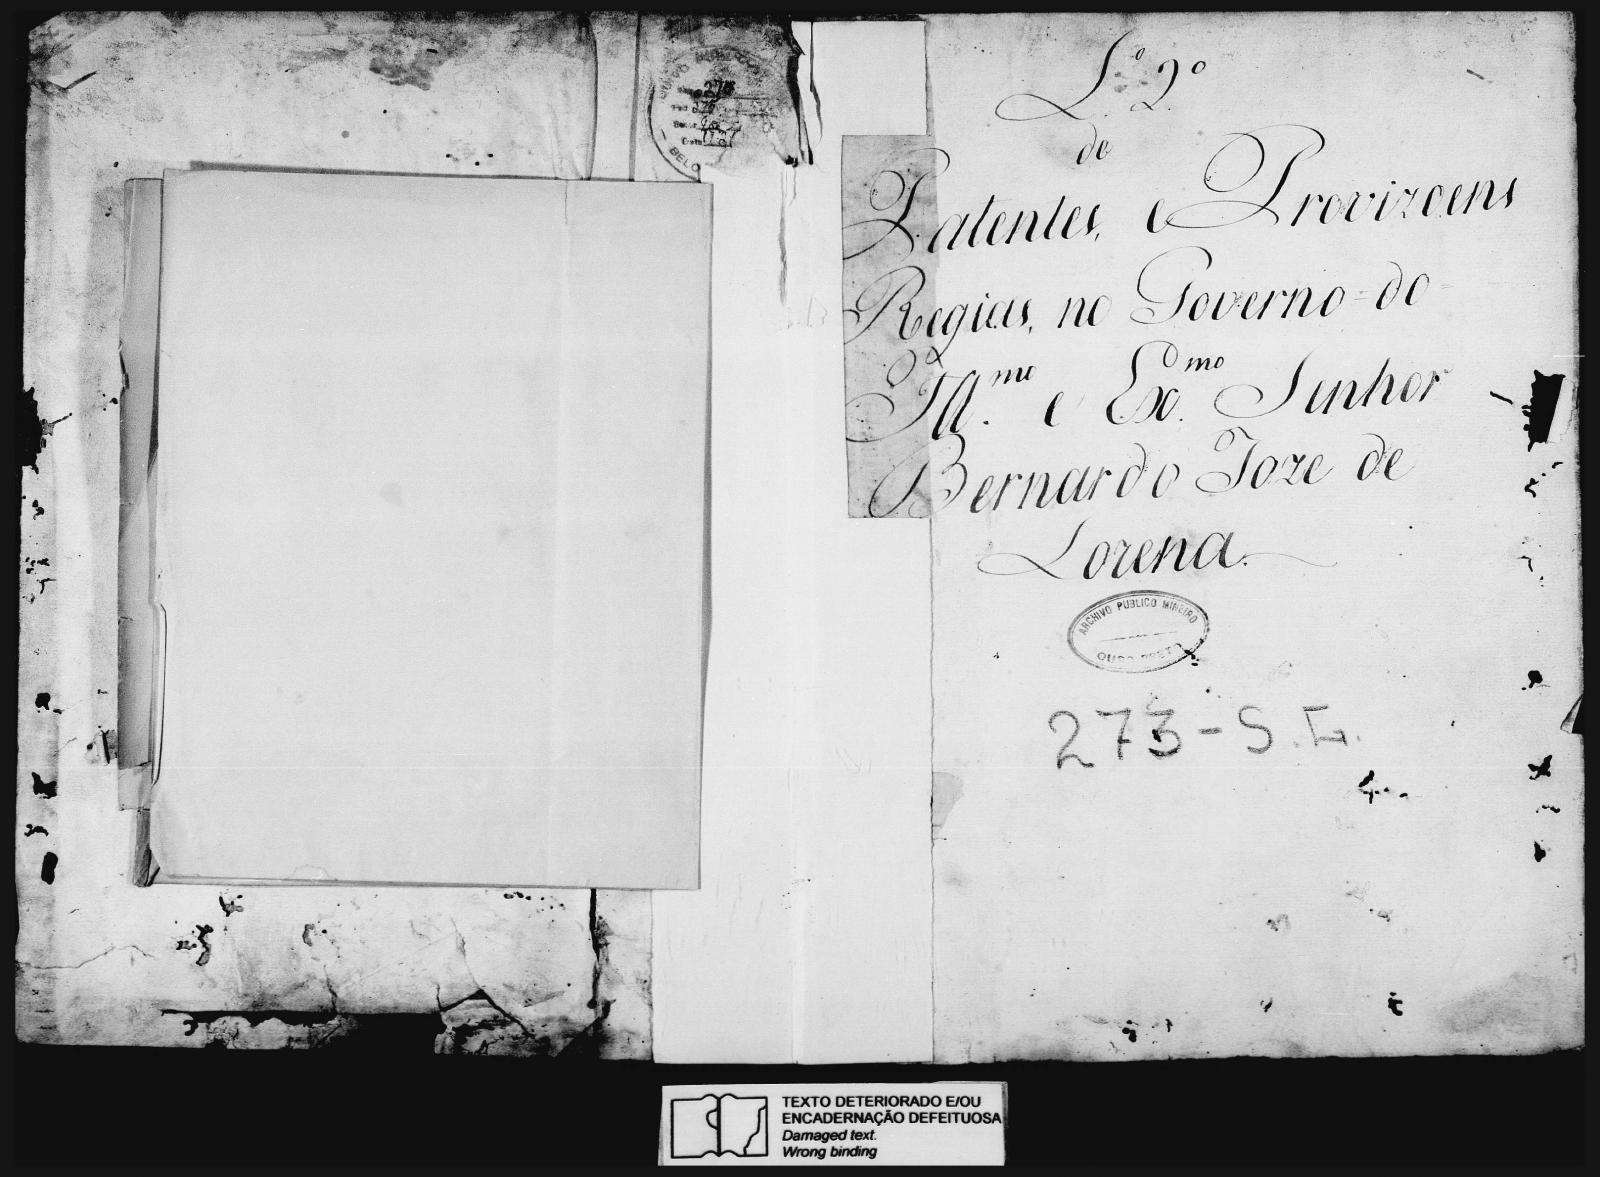 L.º 2º
de
Patentes, e Provizoens
Regias, no Governo do
Ill.mo e Ex.mo Senhor
Bernardo Joze de
Lorena.
ARCHIVO PUBLICO MINEIRO
OURO PRETO
273-S.G.
BELO
TEXTO DETERIORADO E/OU
ENCADERNAÇÃO DEFEITUOSA
Damaged text.
Wrong binding